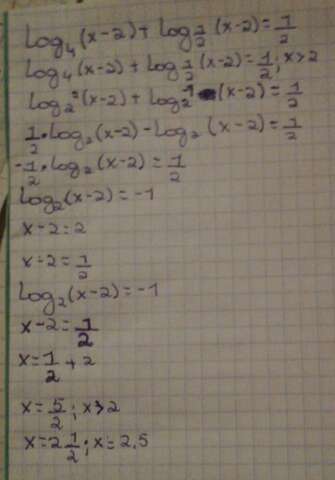 log₄(x-2) + log½(x-2) = 1/2
log₄(x-2) + log½(x-2) = 1/2; x>2
log₂²(x-2) + log₂⁻¹(x-2) = 1/2
1/2 · log₂(x-2) - log₂(x-2) = 1/2
-1/2 · log₂(x-2) = 1/2
log₂(x-2) = -1
x-2 = 2
x-2 = 1/2
log₂(x-2) = -1
x-2 = 1/2
x = 1/2 + 2
x = 5/2; x>2
x = 2 1/2; x = 2.5